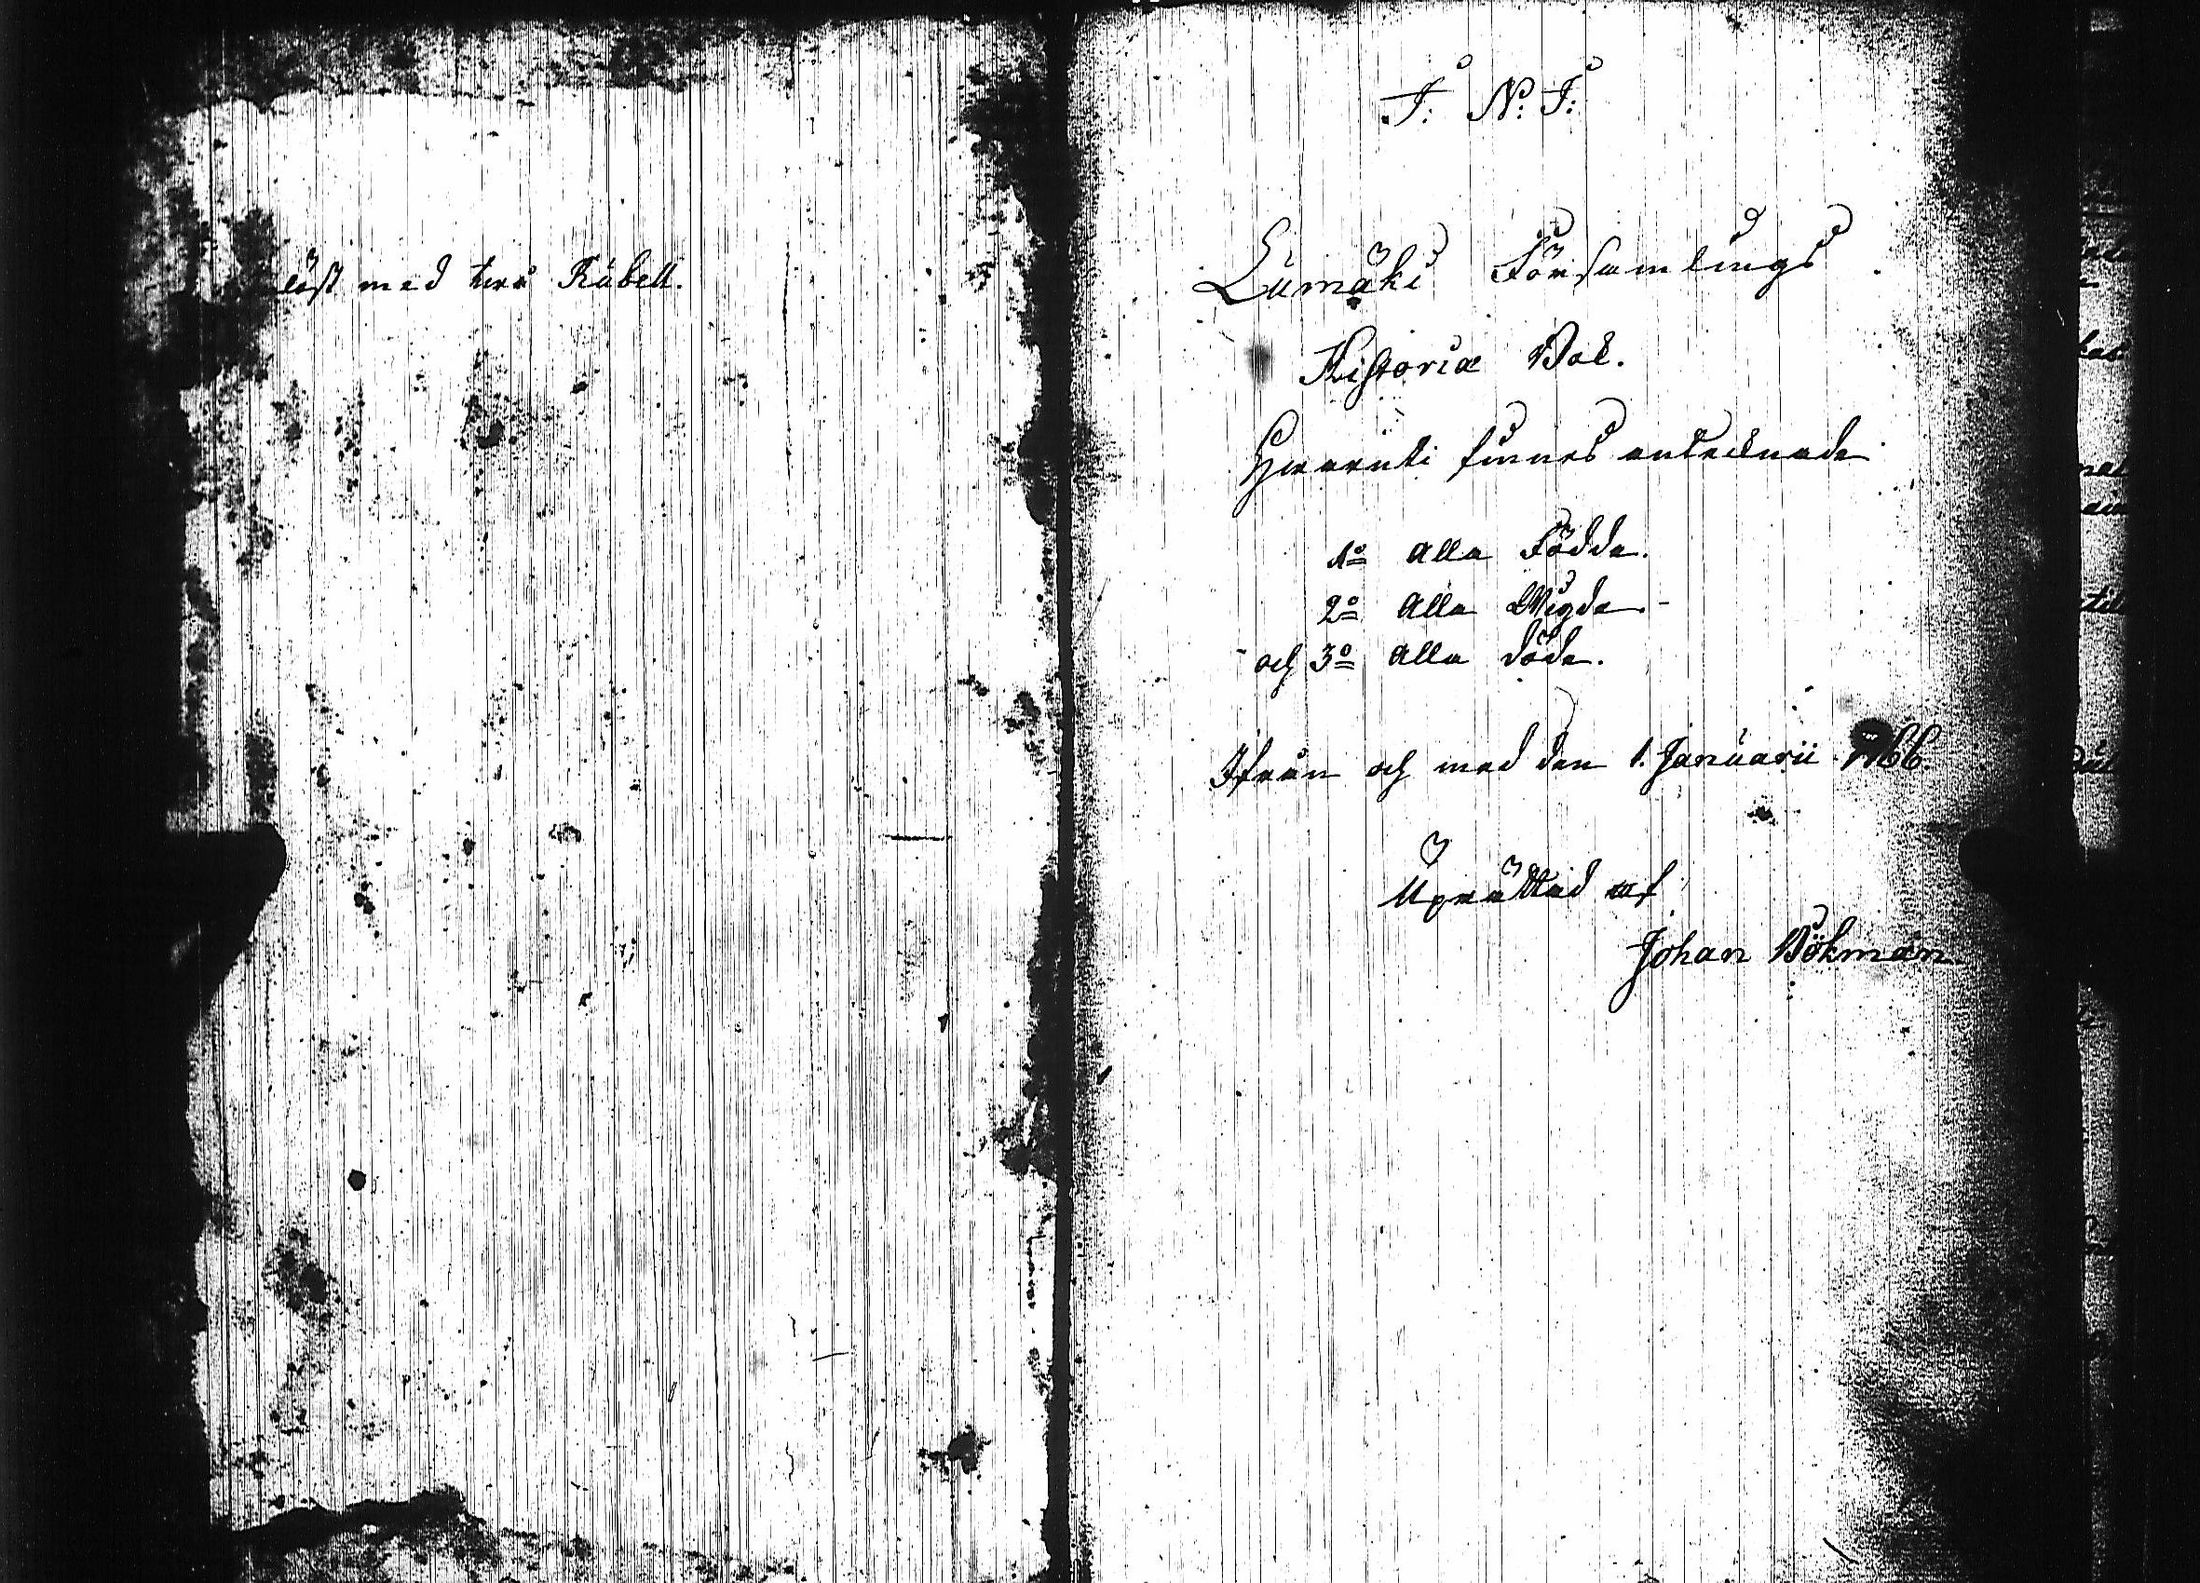 löst med twå Rubell.
I: N: J:
Lumäki Församlings
Historiæ Bok.
Hwaruti finnes antecknade
1o Alla Födde.
2o Alla Wigde.
och 3o Alla döde.
Ifrån och med den 1. Januarii 1766.
Uprättad af
Johan Bökman